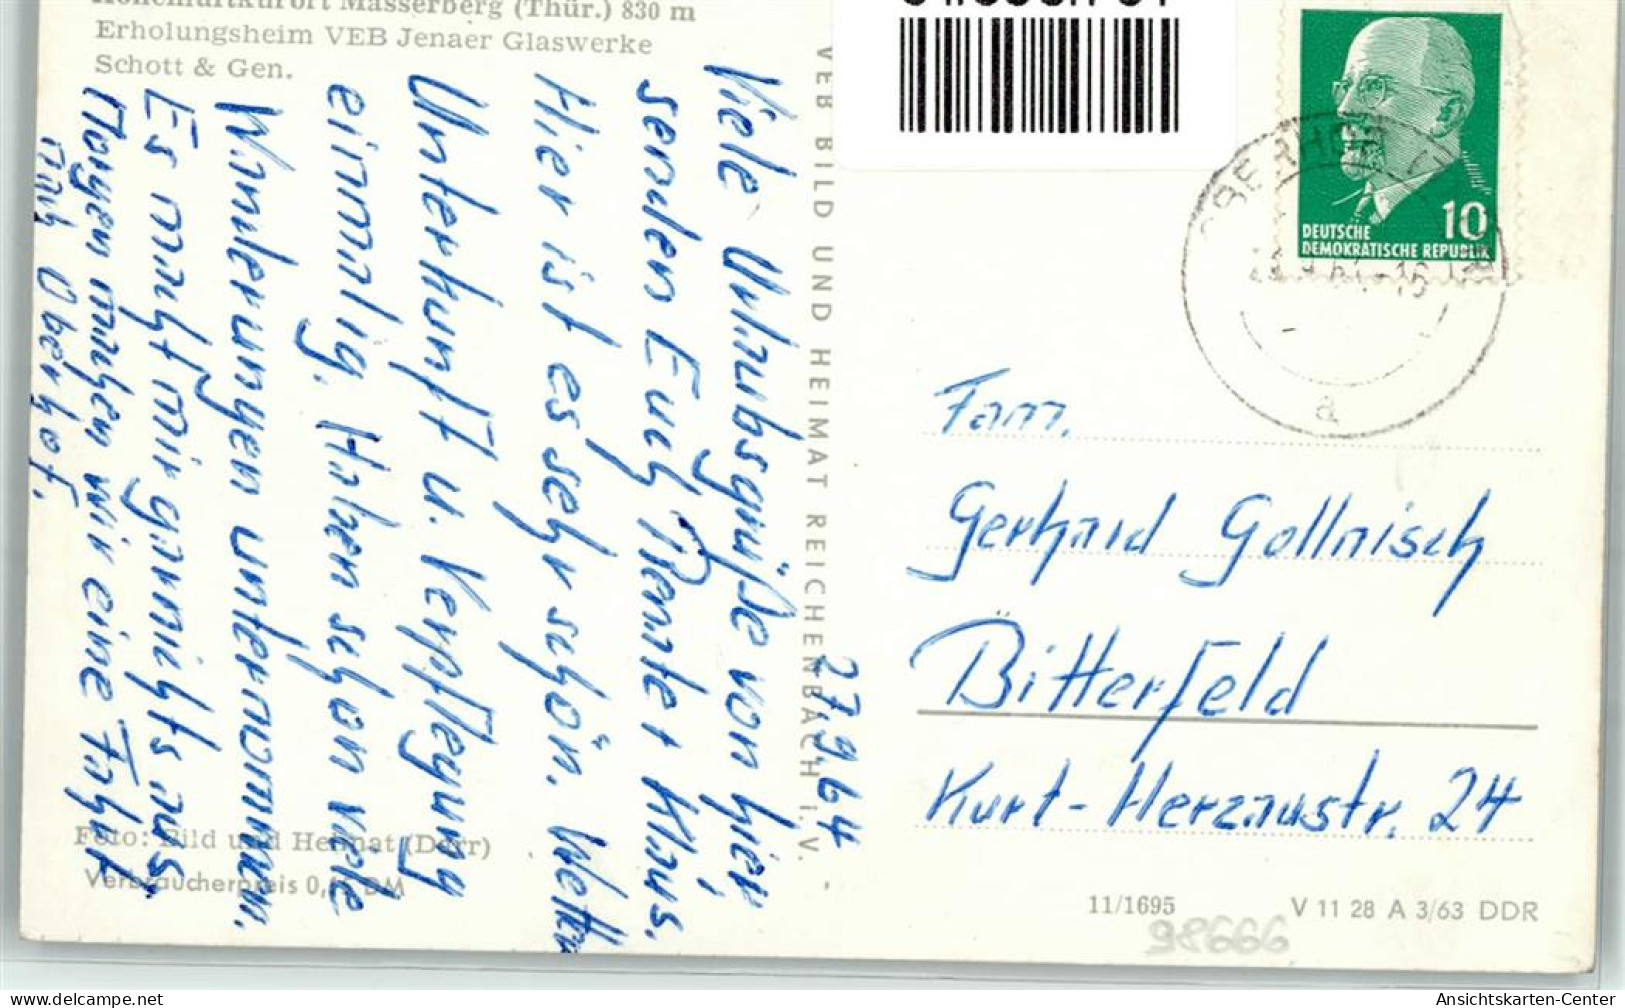 Höhenluftkurort Masserberg (Thür.) 830 m
Erholungsheim VEB Jenaer Glaswerke
Schott & Gen.
27.9.64
Viele Urlaubsgrüße von hier
senden Euch Renate + Klaus.
Hier ist es sehr schön. Wetter,
Unterkunft u. Verpflegung
einmalig. Haben schon viele
Wanderungen unternommen.
Es macht mir garnichts aus.
Morgen machen wir eine Fahrt
nach Oberhof.
Foto: Bild und Heimat (Darr)
Verbraucherpreis 0, DM
VEB BILD UND HEIMAT REICHENBACH i. V.
DEUTSCHE
DEMOKRATISCHE REPUBLIK
10
OBERHOF
a
Fam.
Gerhard Gollnisch
Bitterfeld
Kurt-Herzaustr. 24
11/1695
V 11 28 A 3/63 DDR
www.akpool.de
Ansichtskarten-Center